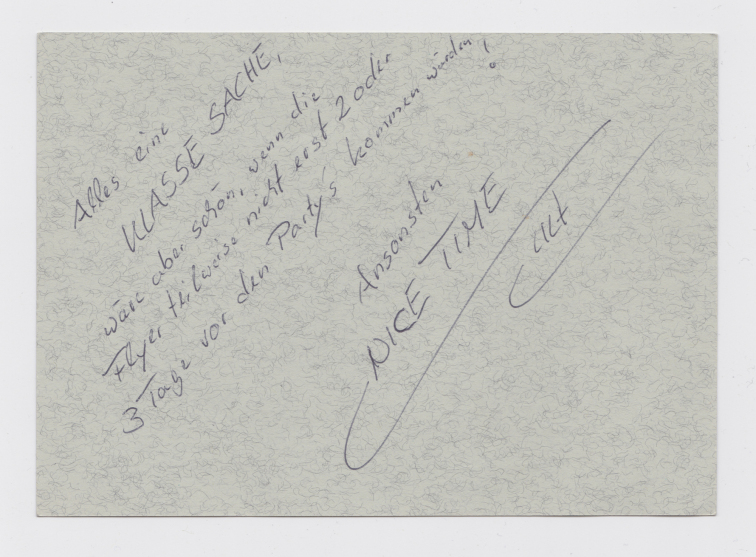 Alles eine
KLASSE SACHE,
wäre aber schön, wenn die
Flyer teilweise nicht erst 2 oder
3 Tage vor den Party's kommen würden!
Ansonsten
NICE TIME